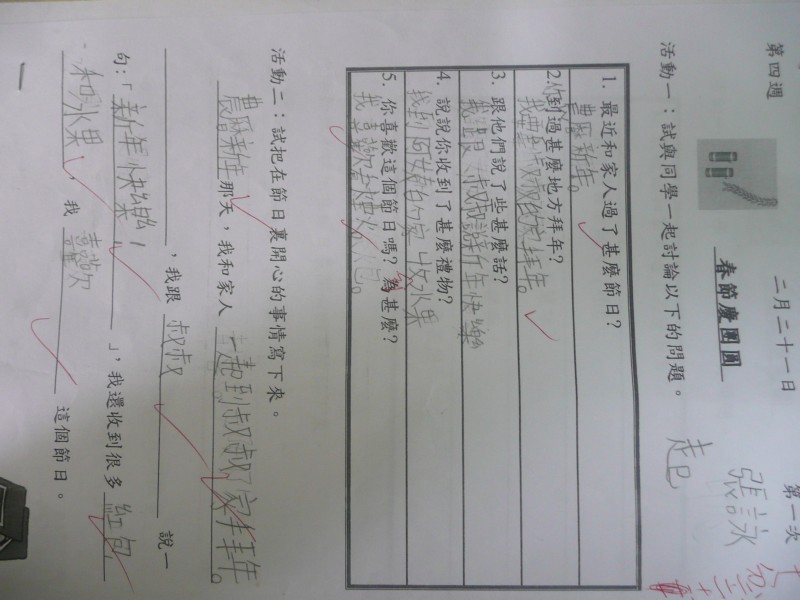 第四週
二月二十一日
第一次
春節慶團圓
張詠
起
活動一：試與同學一起討論以下的問題。
1. 最近和家人過了甚麼節日？
農曆新年。
2. 你到過甚麼地方拜年？
我去叔叔的家拜年。
3. 跟他們說了些甚麼話？
我跟叔叔說新年快樂
4. 說說你收到了甚麼禮物？
5. 你喜歡這個節日嗎？為甚麼？
活動二：試把在節日裏開心的事情寫下來。
農曆新年那天，我和家人一起到叔叔家拜年。
，我跟叔叔說一
句：「新年快樂！」，我還收到很多紅包
和水果，我喜歡這個節日。